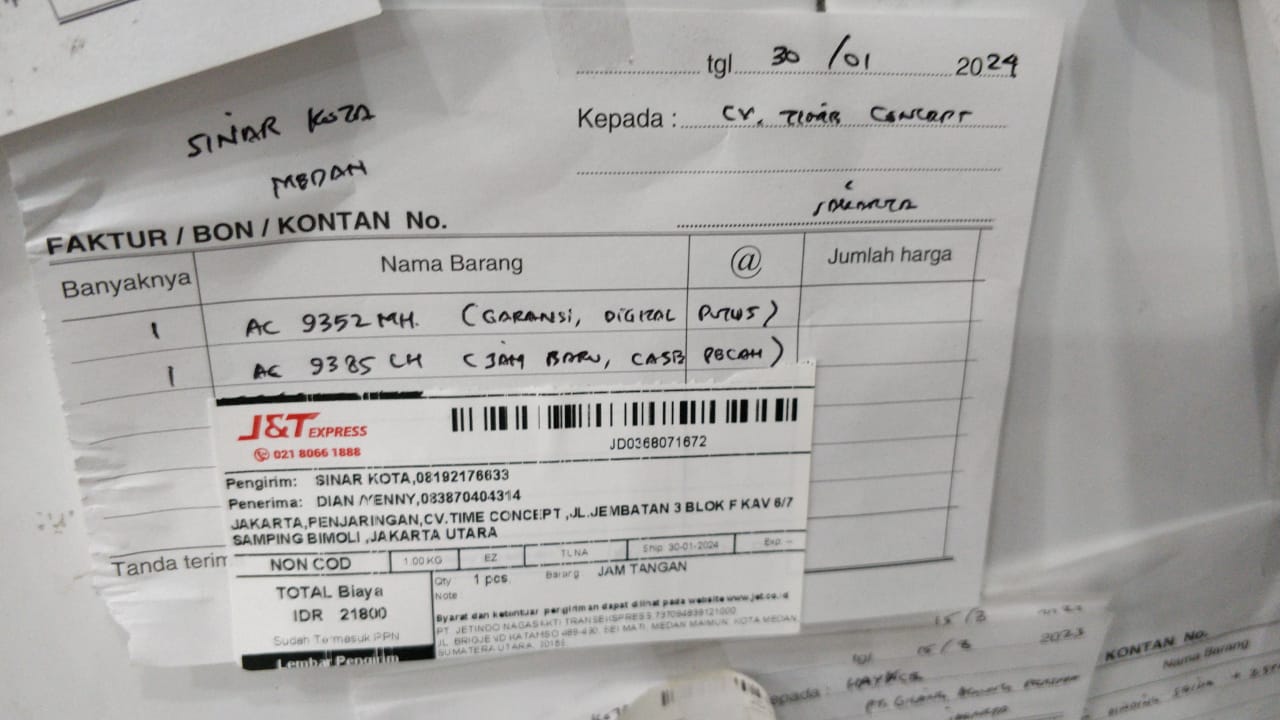 tgl 30/01 2024
Kepada : CV. TIME CONCEPT
SINAR KOTA
MEDAN
JAKARTA
FAKTUR / BON / KONTAN No.
Banyaknya Nama Barang @ Jumlah harga
1 AC 9352 MH. (GARANSI, DIGITAL PUTUS)
1 AC 9385 LH (JAM BARU, CASE PECAH)
J&T EXPRESS
021 8066 1888
JD0368071672
Pengirim: SINAR KOTA,08192176633
Penerima: DIAN /YENNY,083870404314
JAKARTA,PENJARINGAN,CV.TIME CONCEPT ,JL.JEMBATAN 3 BLOK F KAV 6/7
SAMPING BIMOLI ,JAKARTA UTARA
Tanda terim
NON COD 1.00 KG EZ Ship 30-01-2024 Exp. --
TOTAL Biaya
IDR 21800
Sudah Termasuk PPN
Lembar Pengirim
Qty 1 pcs Barang JAM TANGAN
Note
Syarat dan ketentuan pengiriman dapat dilihat pada website www.jet.co.id
PT. JETINDO NAGASAKTI TRANSEKSPRESS
JL. BRIGJEND KATAMSO SEI MATI, MEDAN MAIMUN, KOTA MEDAN,
SUMATERA UTARA,
tgl 2023
epada :
KONTAN No.
Nama Barang